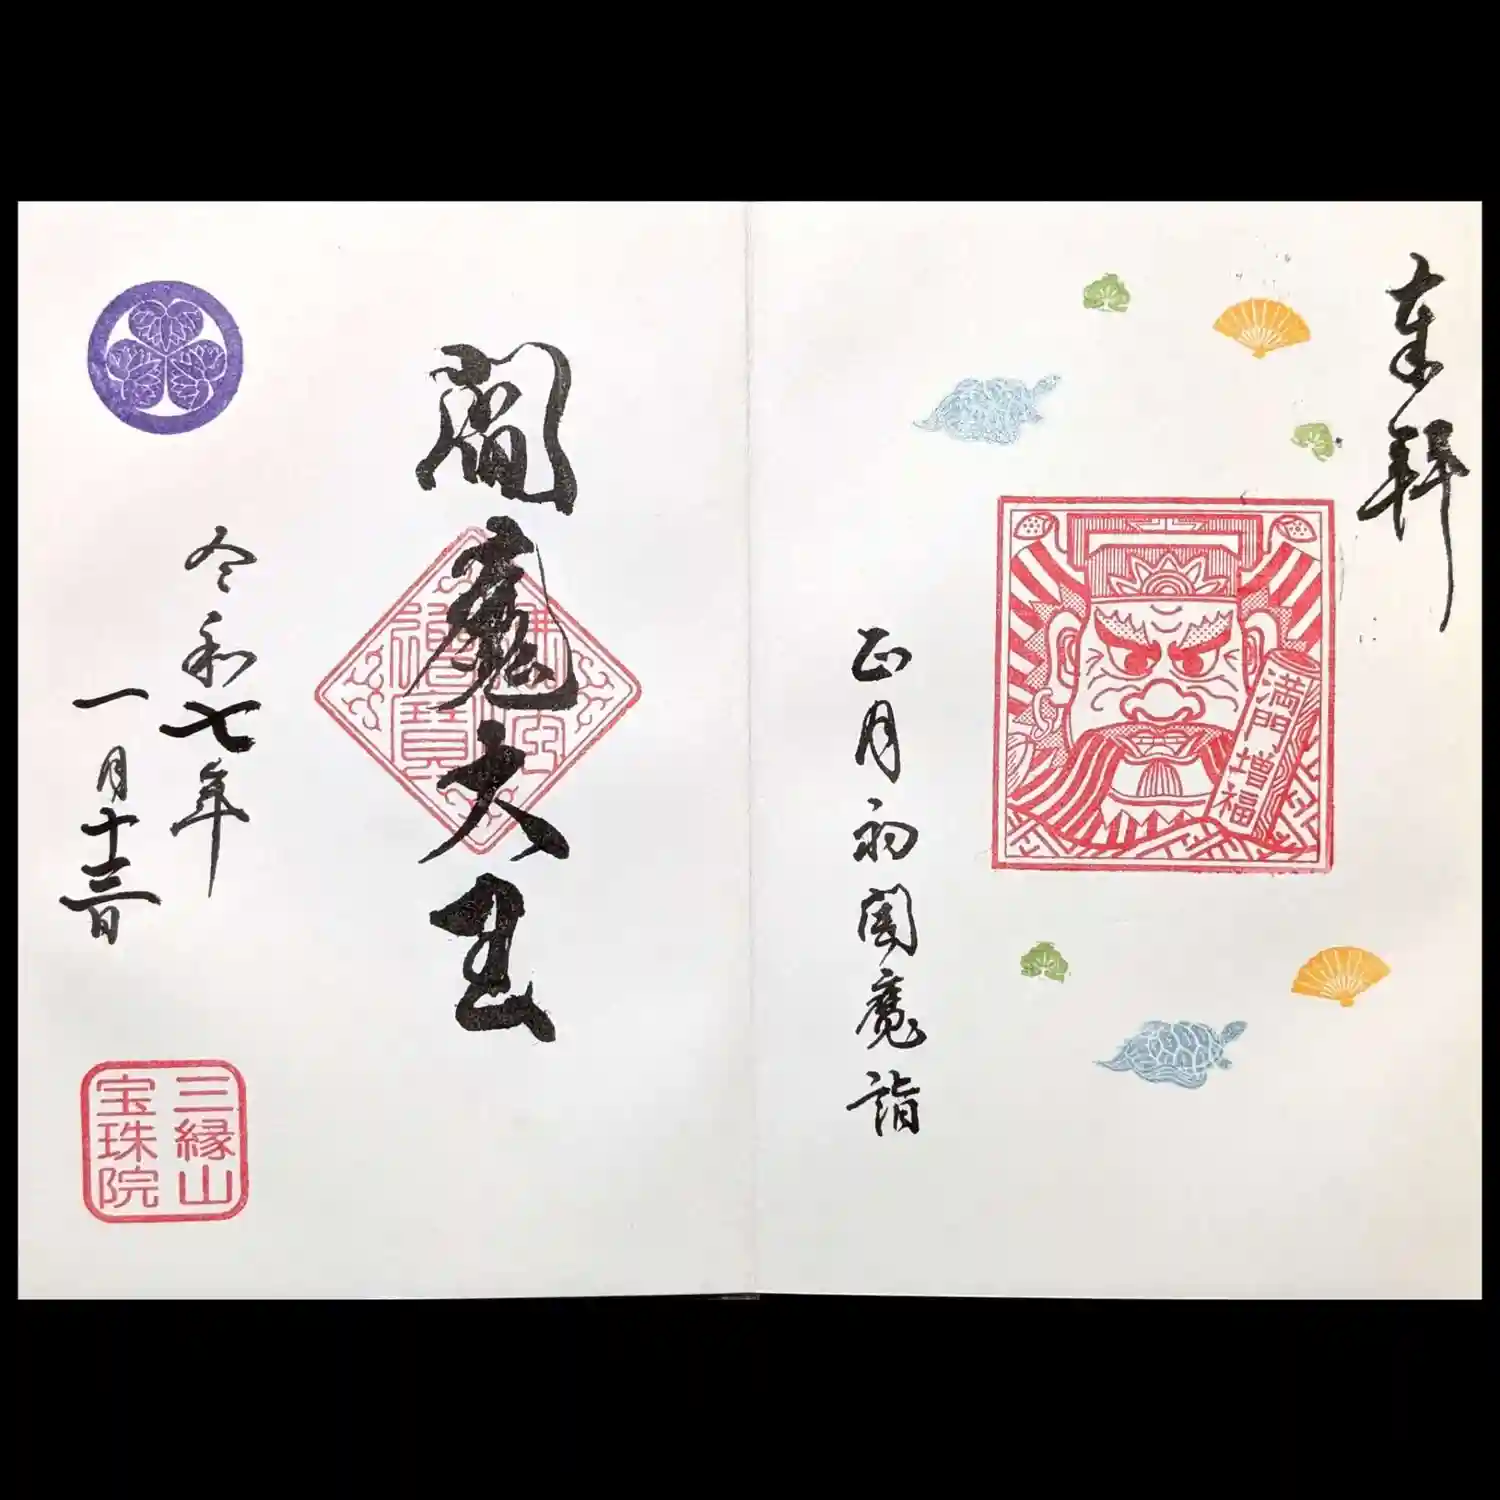 奉拝
満門増福
正月初閻魔詣
閻魔大王
令和七年
一月十三日
三縁山
宝珠院